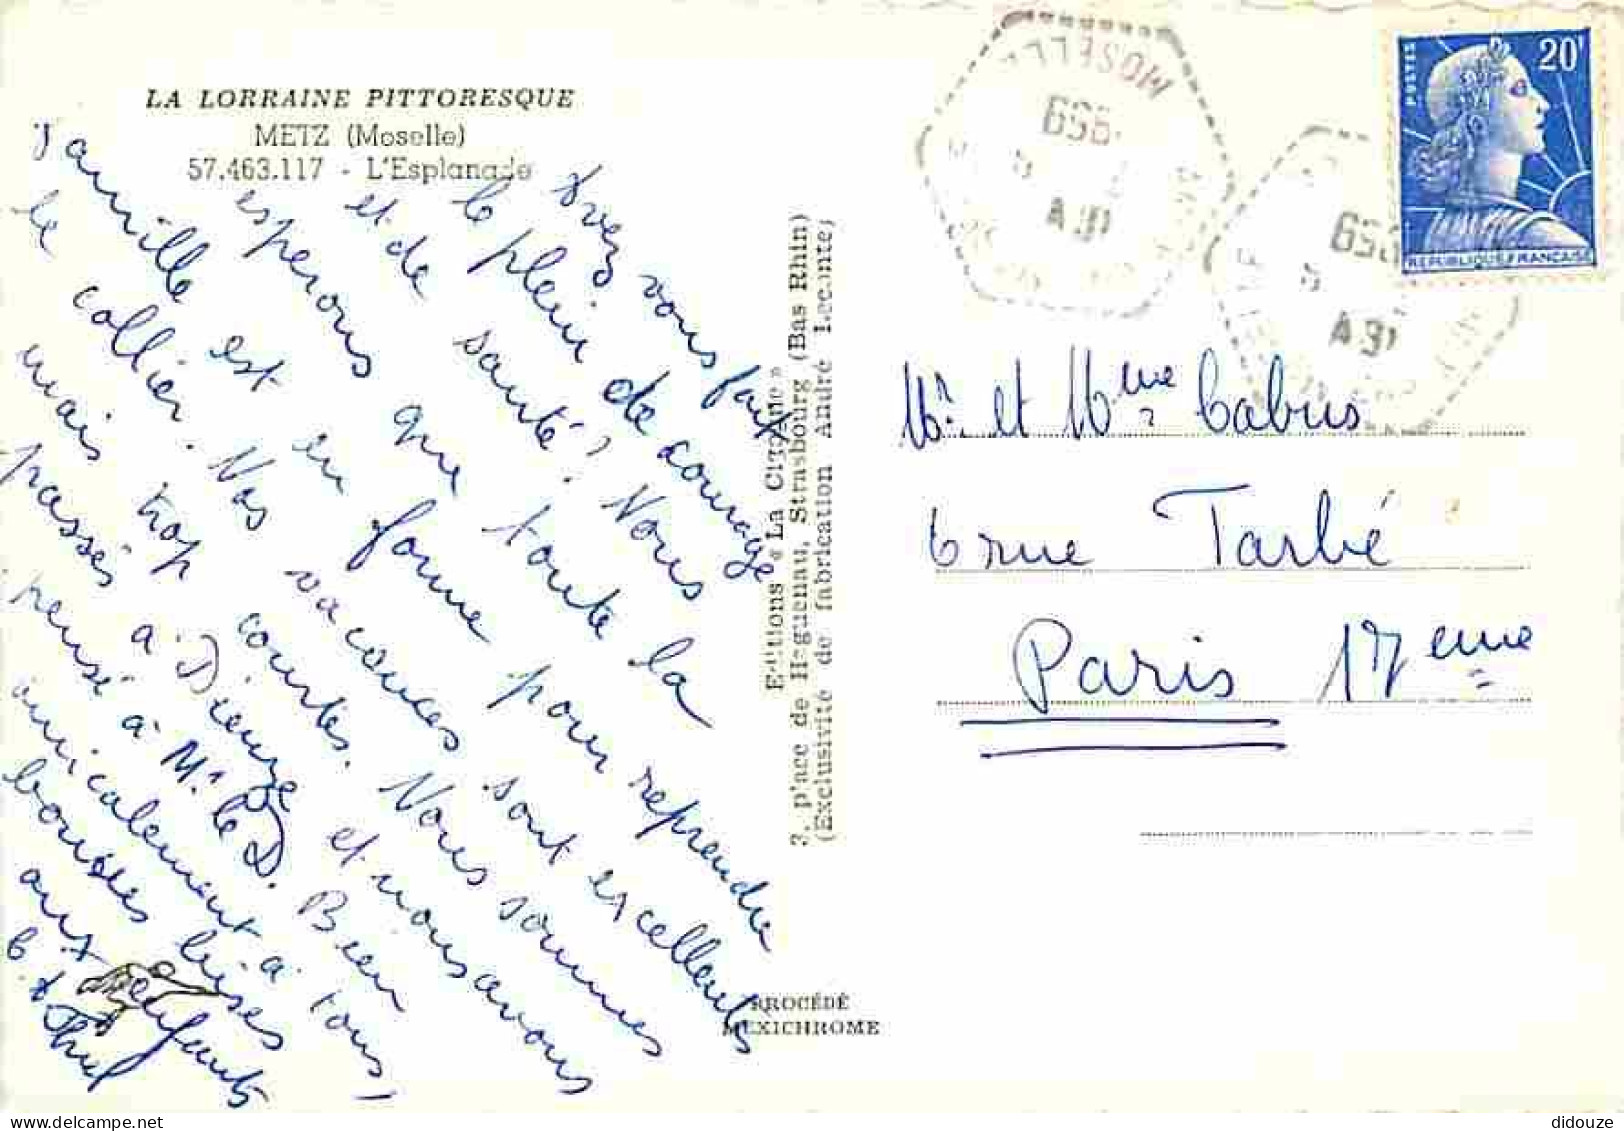 LA LORRAINE PITTORESQUE
METZ (Moselle)
57.463.117 - L'Esplanade
Avez vous faux
le plein de courage
et de santé? Nous
esperons que toute la
famille est en forme pour reprendre
le collier. Nos vacances sont excellentes
mais trop courtes. Nous sommes
passés à Dieuze et nous avons
pensé à Mr le D. Bien
amicalement à tous,
bonnes bises
aux enfants
Editions « La Cigogne »
3, place de Haguenau, Strasbourg (Bas Rhin)
(Exclusivité de fabrication André Leconte)
PROCÉDÉ
MEXICHROME
MOSELLE
POSTES
20F
REPUBLIQUE FRANÇAISE
Mr et Mme Cabus
6 rue Tarbé
Paris 17eme
didouze